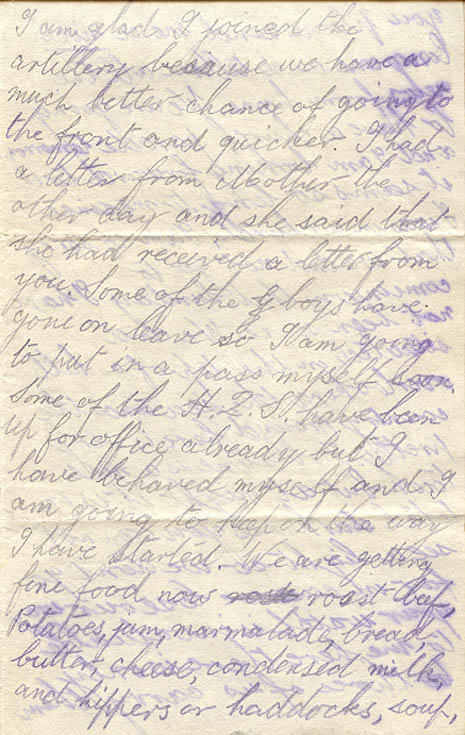 I am glad I joined the
artillery because we have a
much better chance of going to
the front and quicker. I had
a letter from Mother the
other day and she said that
she had received a letter from
you. Some of the G boys have
gone on leave so I am going
to put in a pass myself soon.
Some of the H.2.S. have been
up for office already but I
have behaved myself and I
am going to keep on the way
I have started. We are getting
fine food now roast beef,
Potatoes, jam, marmalade, bread,
butter, cheese, condensed milk,
and kippers or haddocks, soup,